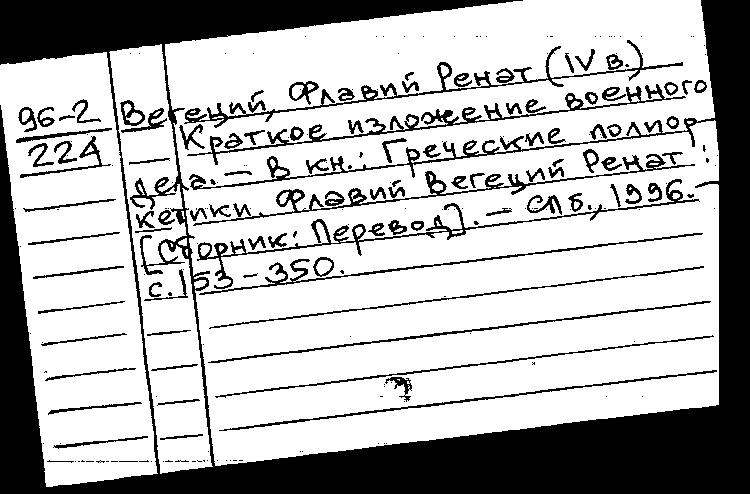 96-2
224
Вегеций, Флавий Ренат (IV в.)
Краткое изложение военного
дела. — В кн.: Греческие полиор
кетики. Флавий Вегеций Ренат :
[Сборник: Перевод]. — СПб., 1996. —
с. 153-350.